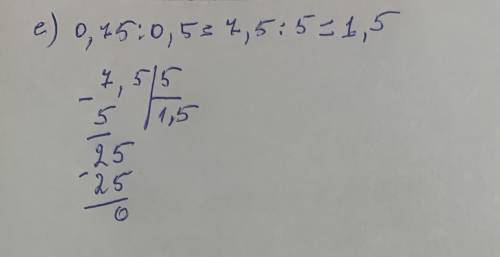 е) 0,75:0,5=7,5:5=1,5
- 7,5|5
5 |1,5
- 25
25
0